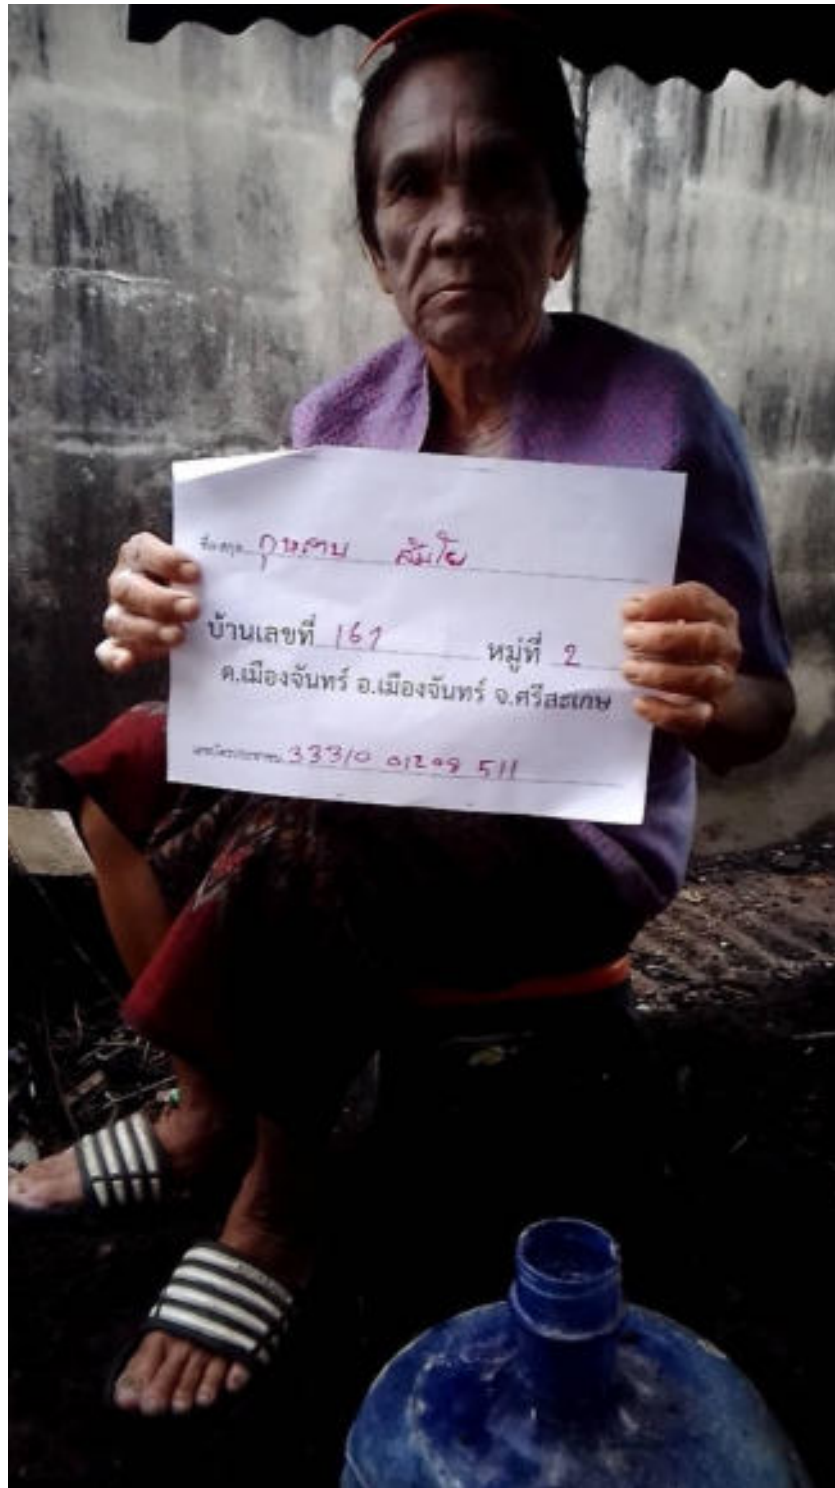 ชื่อ-สกุล กุหลาบ สัมโย
บ้านเลขที่ 167 หมู่ที่ 2
ต.เมืองจันทร์ อ.เมืองจันทร์ จ.ศรีสะเกษ
เลขบัตรประชาชน 33310 01298 511